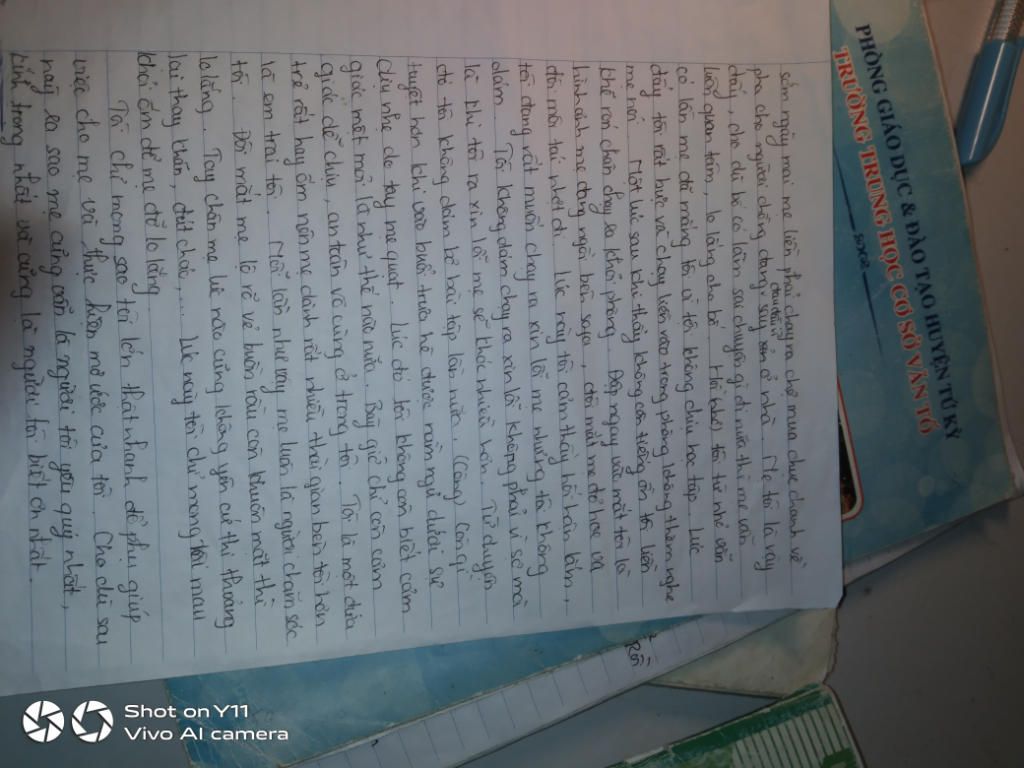 PHÒNG GIÁO DỤC & ĐÀO TẠO HUYỆN TỨ KỲ
TRƯỜNG TRUNG HỌC CƠ SỞ VĂN TỐ
sáng ngày mai mẹ liền phải chạy ra chợ mua chục chanh về
pha cho người chồng đang say xỉn ở nhà. Mẹ tôi là vậy
chuếnh
đấy, cho dù bố có làm sao chuyện gì đi nữa thì mẹ vẫn
luôn quan tâm, lo lắng cho bố. Hồi nhỏ tôi từ nhé vẫn
có lần mẹ đã mắng tôi vì tội không chịu học tập. Lúc
đấy tôi rất bực và chạy luôn vào trong phòng không thèm nghe
mẹ nói. Một lúc sau khi thấy không còn tiếng ồn tôi liền
khẽ rón chân chạy ra khỏi phòng. Đập ngay vào mắt tôi là
hình ảnh mẹ đang ngồi bên sopa, đôi mắt mẹ đỏ hoe và
đôi môi tái nhợt đi. Lúc này tôi cảm thấy hối hận lắm,
tôi đang rất muốn chạy ra xin lỗi mẹ nhưng tôi không
dám. Tôi không dám chạy ra xin lỗi không phải vì sợ mà
là khi tôi ra xin lỗi mẹ sẽ khóc nhiều hơn. Từ chuyện
đó tôi không dám bỏ bài tập lần nữa. (Còng) Còn gì
tuyệt hơn khi vào buổi trưa hè được nằm ngủ dưới sự
dịu nhẹ do tay mẹ quạt. Lúc đó tôi không còn biết cảm
giác mệt mỏi là như thế nào nữa. Bây giờ chỉ còn cảm
giác dễ chịu, an toàn vô cùng ở trong tôi. Tôi là một đứa
trẻ rất hay ốm nên mẹ dành rất nhiều thời gian bên tôi hơn
là em trai tôi. Mỗi lần như vậy mẹ luôn là người chăm sóc
tôi. Đôi mắt mẹ lộ rõ vẻ buồn rầu còn khuôn mặt thì
lo lắng. Tay chân mẹ lúc nào cũng không yên cứ thi thoảng
lại thay khăn, đút cháo,... Lúc này tôi chỉ mong tôi mau
khỏi ốm để mẹ đỡ lo lắng.
Tôi chỉ mong sao tôi lớn thật nhanh để phụ giúp
việc cho mẹ và thực hiện mơ ước của tôi. Cho dù sau
này ra sao mẹ cũng vẫn là người tôi yêu quý nhất,
kính trọng nhất và cũng là người tôi biết ơn nhất.
Rồi,
Shot on Y11
Vivo AI camera